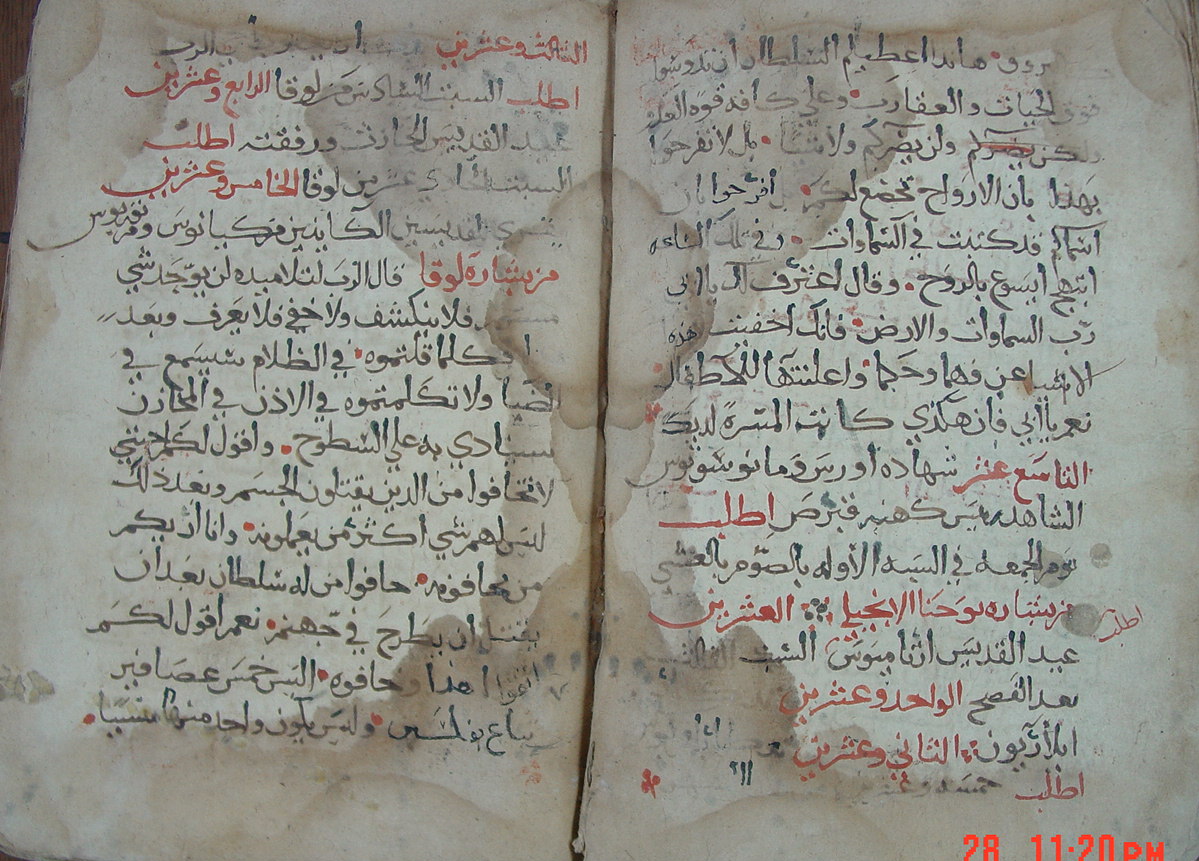 هاندا اعطيكم السلطان ان تدوسوا
فوق الحيات والعقارب وعلي كافه قوه العدو
ولن يضركم ولاشيا بل لا تفرحوا
بهذا بان الارواح تخضع لكم بل افرحوا بان
اسماكم قد كتبت في السماوات وفي تلك الساعه
ابتهج ايسوع بالروح وقال اعترف لك يا ابي
رب السماوات والارض فانك اخفيت هذه
الاشيا عن فهما وحكما واعلنتها للاطفال
نعم يا ابي فان هكذي كانت المسرة لديك
التاسع عشر شهاده
الشاهد اطلب
يوم الجمعه في السبه الأوله بالصوم بالعشي
من بشاره يوحنا الانجيلي العشرين
اطلب
عيد القديس السبت الثالث
بعد الفصح الواحد وعشرين
الثاني وعشرين
اطلب خمسه وعشرين
الثالث وعشرين
اطلب السبت السادس من لوقا الرابع وعشرين
عيد القديس الحارث ورفقته اطلب
السبت الحادي عشر من لوقا الخامس وعشرين
القديسين
من بشاره لوقا قال الرب لتلاميذه لن يوجد شي
فلا ينكشف ولا خفي فلا يعرف وبعد
كلما قلتموه في الظلام سيسمع في
الضيا ولا تكلمتموه في الاذن في المخازن
سينادي به علي السطوح واقول لكم احبتي
لا تخافوا من الذين يقتلون الجسم وبعد ذلك
ليس لهم شي اكثر من يعملونه وانا اريكم
من تخافونه خافوا من له سلطان بعد ان
يقتل ان يطرح في جهنم نعم اقول لكم
اتقوا هذا وخافوه اليس خمس عصافير
تباع بفلسين وليس يكون واحد منها مسيبا
28 11:20 PM